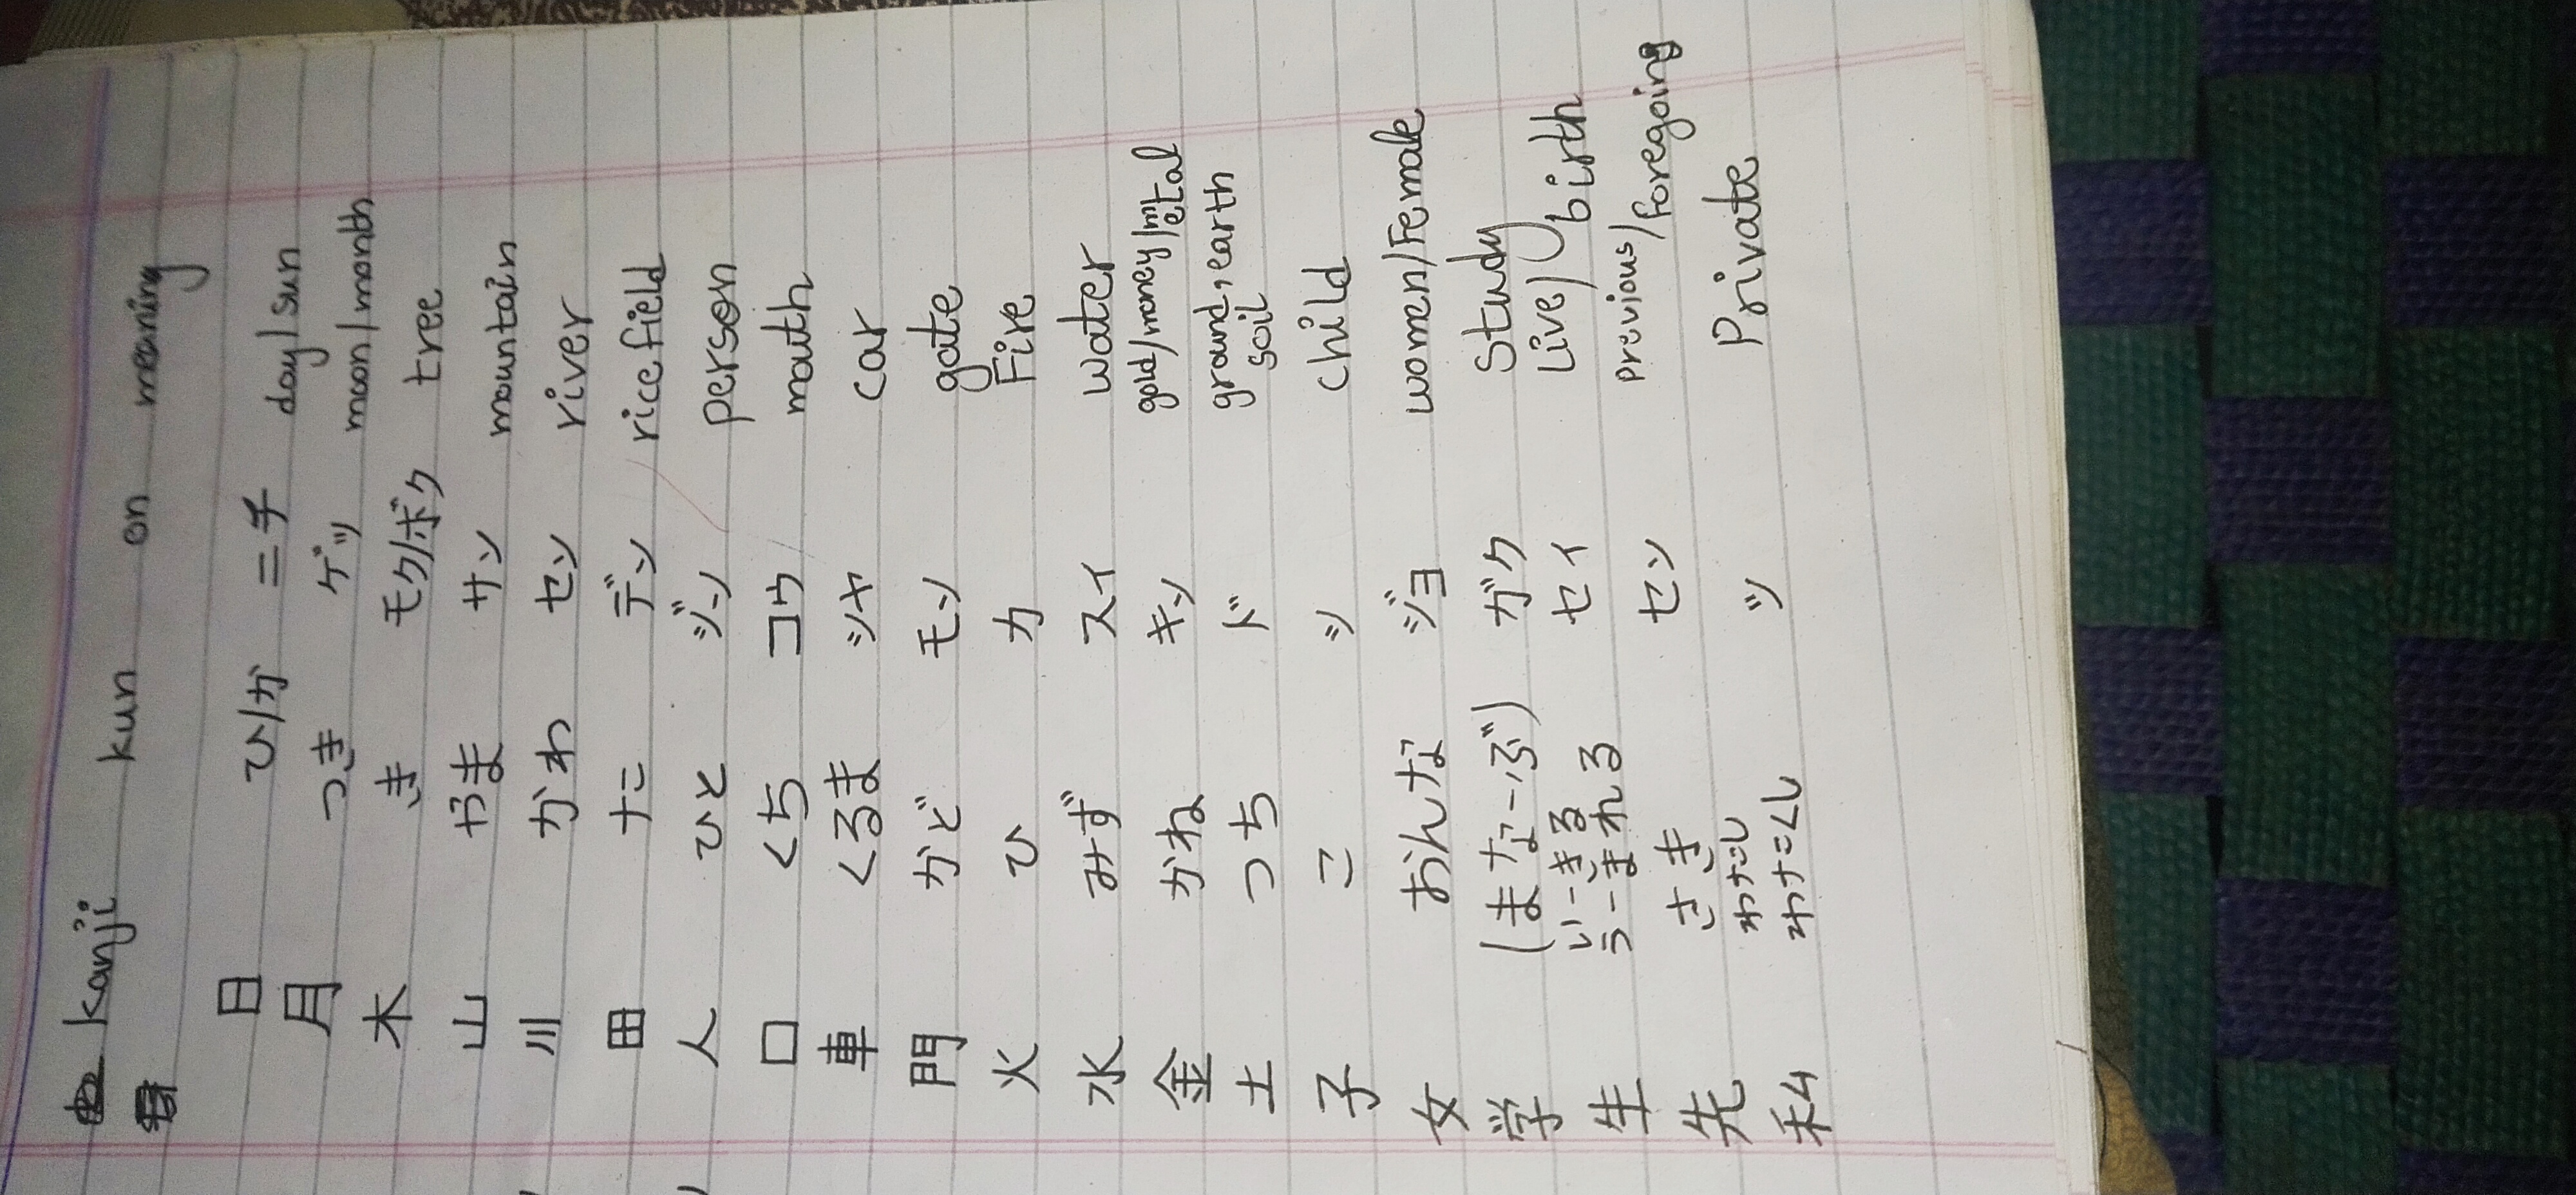 Kanji kun on meaning
日 ひ/か ニチ day/sun
月 つき ゲツ moon/month
木 き モク/ボク tree
山 やま サン mountain
川 かわ セン river
田 た デン rice field
人 ひと ジン person
口 くち コウ mouth
車 くるま シャ car
門 かど モン gate
火 ひ カ Fire
水 みず スイ water
金 かね キン gold/money/metal
土 つち ド ground, earth
soil
子 こ シ child
女 おんな ジョ women/Female
学 (まなーぶ) ガク Study
いーきる
生 うーまれる セイ Live/birth
先 さき セン Previous/foregoing
わたし
私 わたくし ツ Private